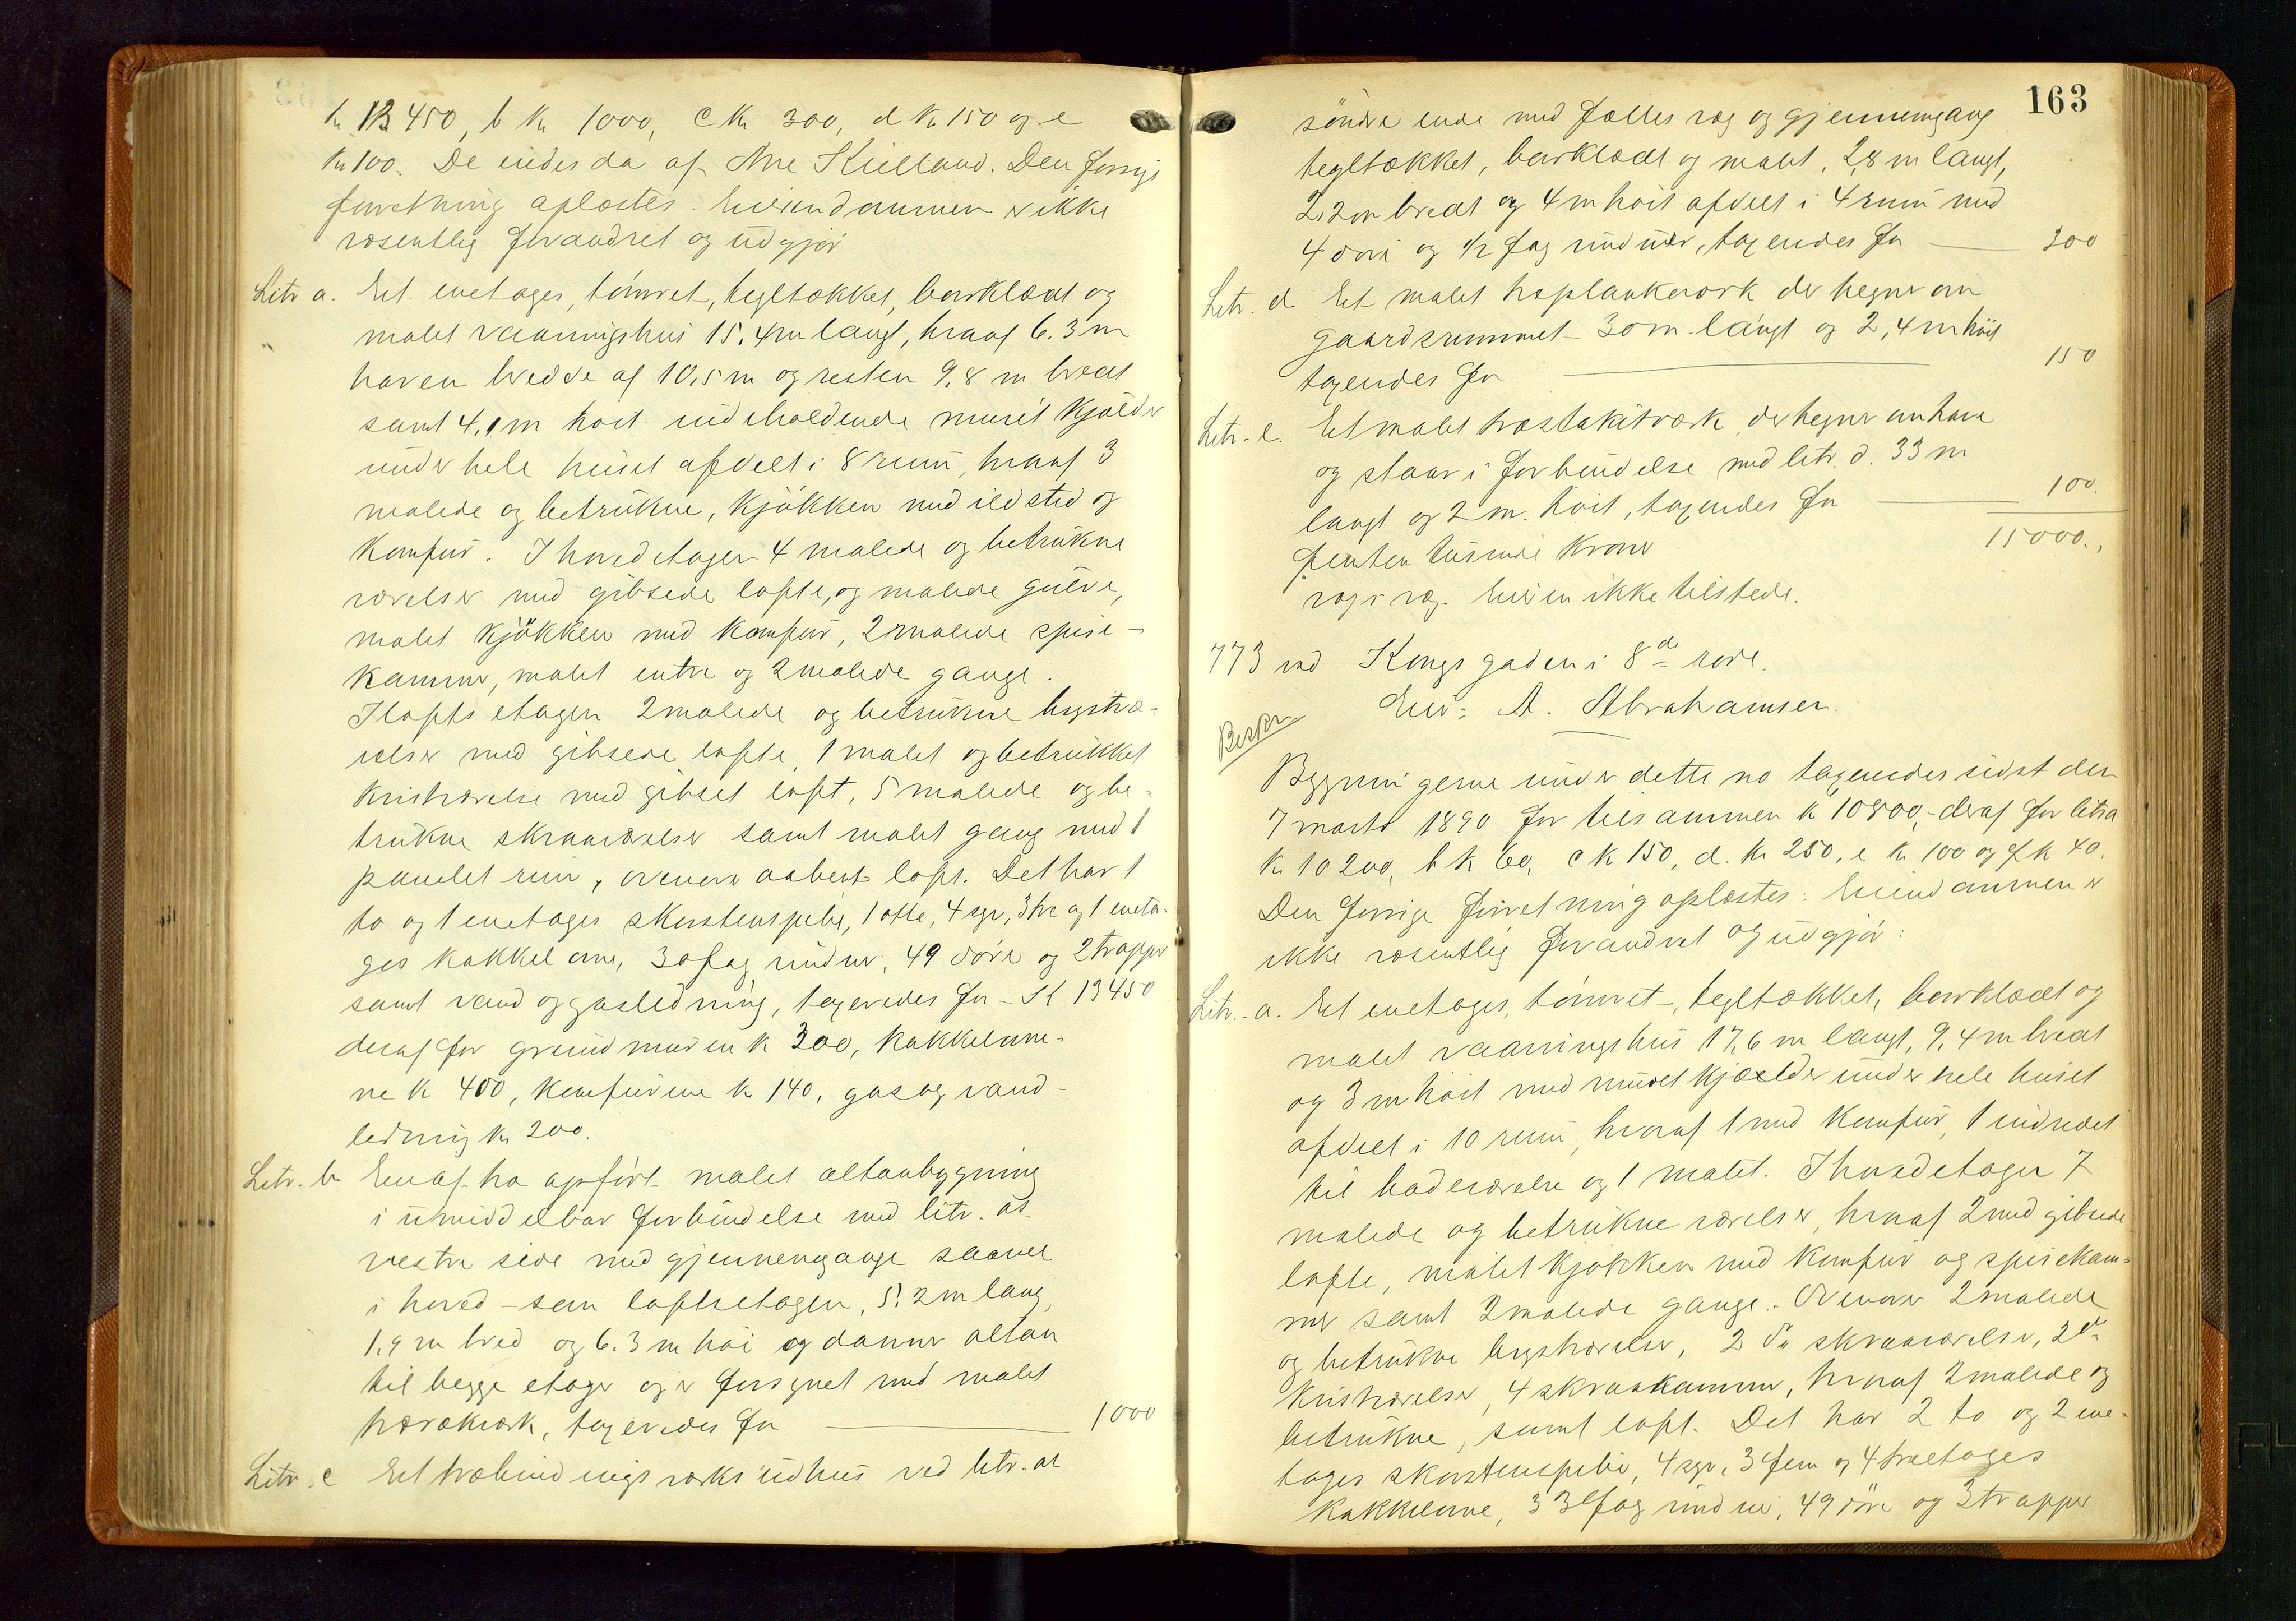 kr 13450, b kr 1000, c kr 300, d kr 150 og e
kr 100. De eiedes da af Kielland. Den forrige
forretning oplæstes. Eiendommen er ikke
væsentlig forandret og udgjør
Litr a. Et enetages, tømret, tegltækket, bordklædt og
malet vaaningshus 15.4 m langt, hvoraf 6.3 m
har en bredde af 10,5 m og resten 9,8 m bredt
samt 4,1 m høit indeholdende muret kjælder
under hele huset afdelt i 8 rum, hvoraf 3
malede og betrukne, kjøkken med ildsted og
komfur. I hovedetagen 4 malede og betrukne
værelser med gibsede lofte, og malede gulve,
malet kjøkken med komfur, 2 malede spise-
kammer, malet entre og 2 malede gange.
I loftsetagen 2 malede og betrukne kvistvæ-
relser med gibsede lofte, 1 malet og betrukket
kvistværelse med gibset loft, 5 malede og be-
trukne skraaværelser samt malet gang med 1
panelet rum, ovenover aabent loft. Det har 1
to og 1 enetages skorstenspibe, 1 otte, 4 syv, 3 tre og 1 eneta-
ges kakkelovne, 30 fag vinduer, 49 døre og 2 trapper
samt vand og gasledning, taxeredes for - K 13450
deraf for grundmuren k 300, kakkelovne-
ne k 400, komfurene kr 140, gas og vand-
ledning kr 200.
Litr. b En af træ opført malet altanbygning
i umiddelbar forbindelse med litr. as
vestre side med gjennemgange saavel
i hoved- som loftsetagen, 5.2 m lang,
1.9 m bred og 6.3 m høi og danner altan
til begge etager og er forsynet med malet
rækværk, taxeredes for 1000
Litr. c Et træbindingsværks udhus ved litr. as
163
søndre ende med fælles væg og gjennemgang
tegltækket, bordklædt og malet, 2,8 m langt,
2,2 m bredt og 4 m høit afdelt i 4 rum med
4 døre og 1/2 fag vinduer, taxeredes for 300
Litr. d Et malet træplankeværk der hegner om
gaardsrummet 30 m langt og 2,4 m høit
taxeredes for 150
Litr. e. Et malet træstakitværk der hegner om have
og staar i forbindelse med litr. d. 33 m
langt og 2 m. høit, taxeredes for 100.
femten tusinde kroner 15000.,
Eieren ikke tilstede.
773 ved Kongsgaden i 8de rode.
Eier: A. Abrahamsen.
Beskr
Bygningerne under dette no taxeredes sidst den
7 marts 1890 for tilsammen k 10800,- deraf for litr a
kr 10200, b k 60, c k 150, d. kr 250, e kr 100 og f k 40.
Den forrige forretning oplæstes: Eiendommen er
ikke væsentlig forandret og udgjør:
Litr. a. Et enetages, tømret, tegltækket, bordklædt og
malet vaaningshus 17,6 m langt, 9,4 m bredt
og 3 m høit med muret kjælder under hele huset
afdelt i 10 rum, hvoraf 1 med komfur, 1 indredet
til badeværelse og 1 malet. I hovedetagen 7
malede og betrukne værelser, hvoraf 2 med gibsede
lofte, malet kjøkken med komfur og spisekam-
mer samt 2 malede gange. Ovenover 2 malede
og betrukne kvistværelser, 2 do skraaværelser, 2 do
kvistværelser, 4 skraakammer, hvoraf 2 malede og
betrukne, samt loft. Det har 2 to og 2 ene-
tages skorstenspibe, 4 syv, 3 fem og 4 treetages
kakkelovne, 33 fag vinduer, 49 døre og 3 trapper